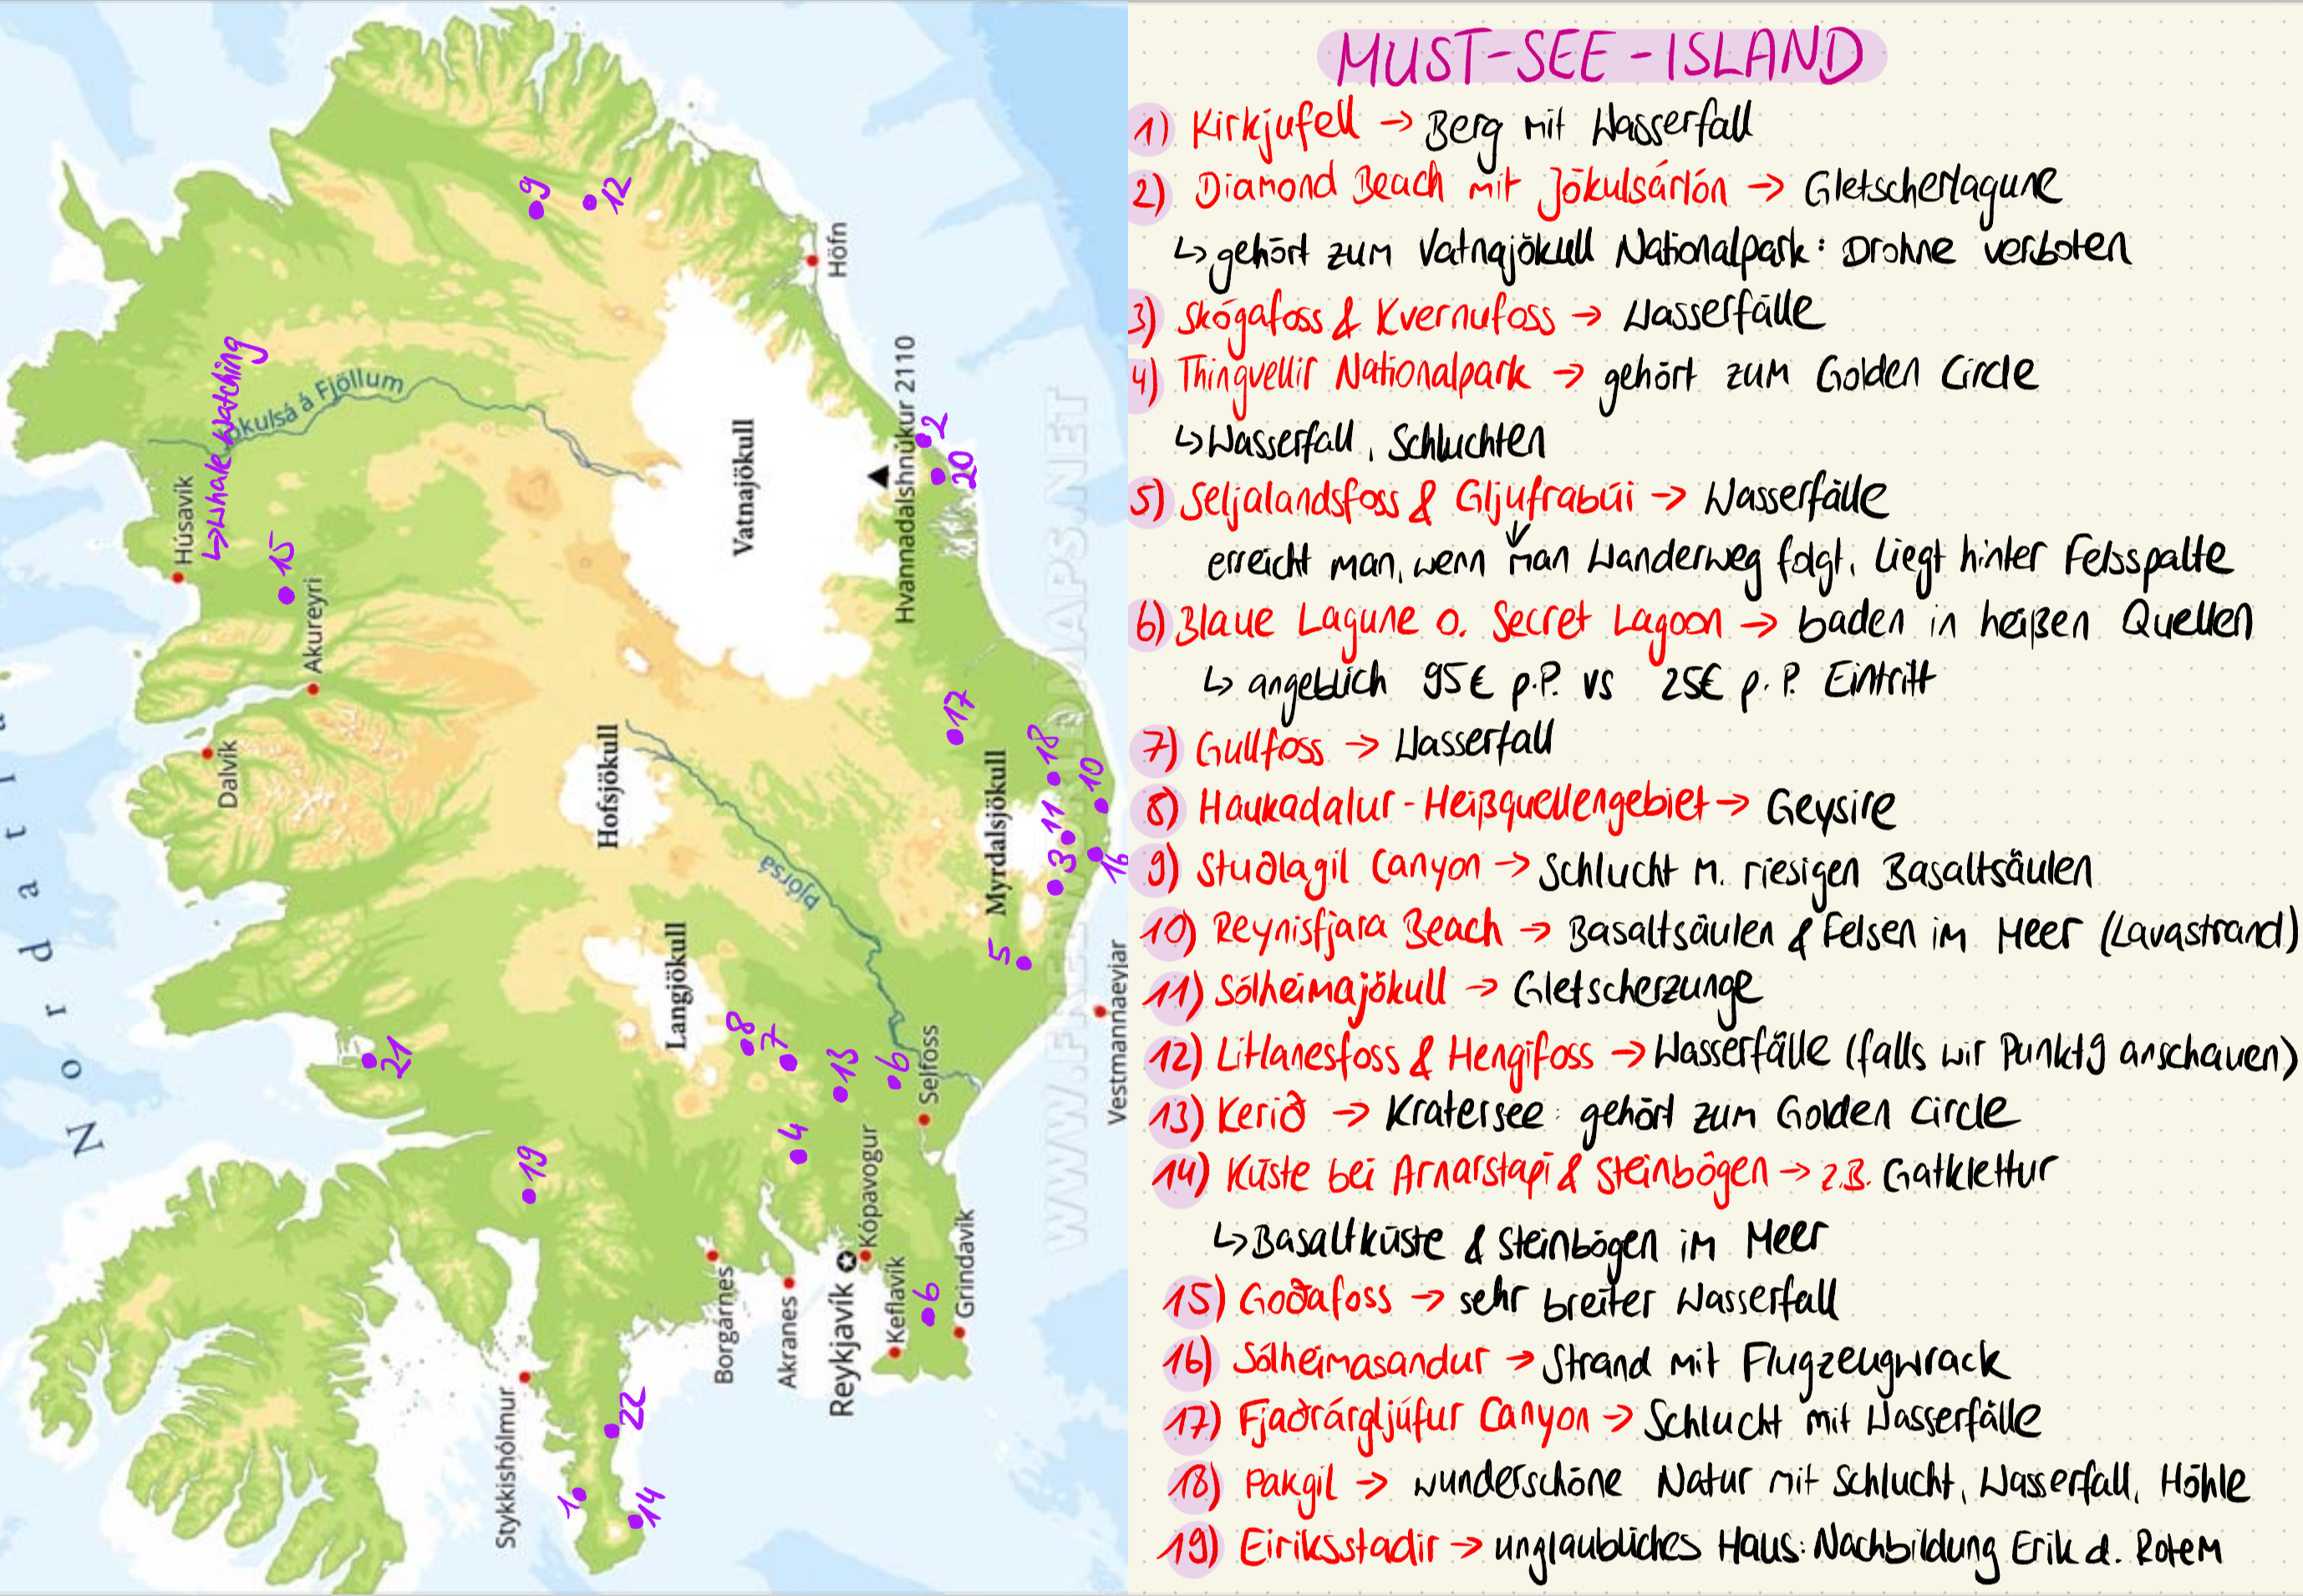 MUST-SEE-ISLAND
1) Kirkjufell → Berg mit Wasserfall
2) Diamond Beach mit Jökulsárlón → Gletscherlagune
↳ gehört zum Vatnajökull Nationalpark: Drohne verboten
3) Skógafoss & Kvernufoss → Wasserfälle
4) Thingvellir Nationalpark → gehört zum Golden Circle
↳ Wasserfall, Schluchten
5) Seljalandsfoss & Gljufrabúi → Wasserfälle
erreicht man, wenn man Wanderweg folgt, liegt hinter Felsspalte
6) Blaue Lagune o. Secret Lagoon → baden in heißen Quellen
↳ angeblich 95€ p.P. vs 25€ p.P. Eintritt
7) Gullfoss → Wasserfall
8) Haukadalur-Heißquellengebiet → Geysire
9) Stuðlagil Canyon → Schlucht m. riesigen Basaltsäulen
10) Reynisfjara Beach → Basaltsäulen & Felsen im Meer (Lavastrand)
11) Sólheimajökull → Gletscherzunge
12) Litlanesfoss & Hengifoss → Wasserfälle (falls wir Punkt 9 anschauen)
13) Kerið → Kratersee: gehört zum Golden Circle
14) Küste bei Arnarstapi & Steinbögen → z.B. Gatklettur
↳ Basaltküste & Steinbögen im Meer
15) Goðafoss → sehr breiter Wasserfall
16) Sólheimasandur → Strand mit Flugzeugwrack
17) Fjaðrárgljúfur Canyon → Schlucht mit Wasserfälle
18) Pakgil → wunderschöne Natur mit Schlucht, Wasserfall, Höhle
19) Eiriksstadir → unglaubliches Haus: Nachbildung Erik d. Rotem
Nordatl
Stykkishólmur
Borgarnes
Akranes
Reykjavík
Kópavogur
Keflavík
Grindavík
Selfoss
Vestmannaeyjar
Dalvík
Akureyri
Húsavík
↳ Whale Watching
Jökulsá á Fjöllum
Höfn
Vatnajökull
Hvannadalshnúkur 2110
Hofsjökull
Langjökull
Myrdalsjökull
Þjórsá
WWW.FREEWORLDMAPS.NET
1
2
3
4
5
6
6
7
8
9
10
11
12
13
14
15
16
17
18
19
20
21
22